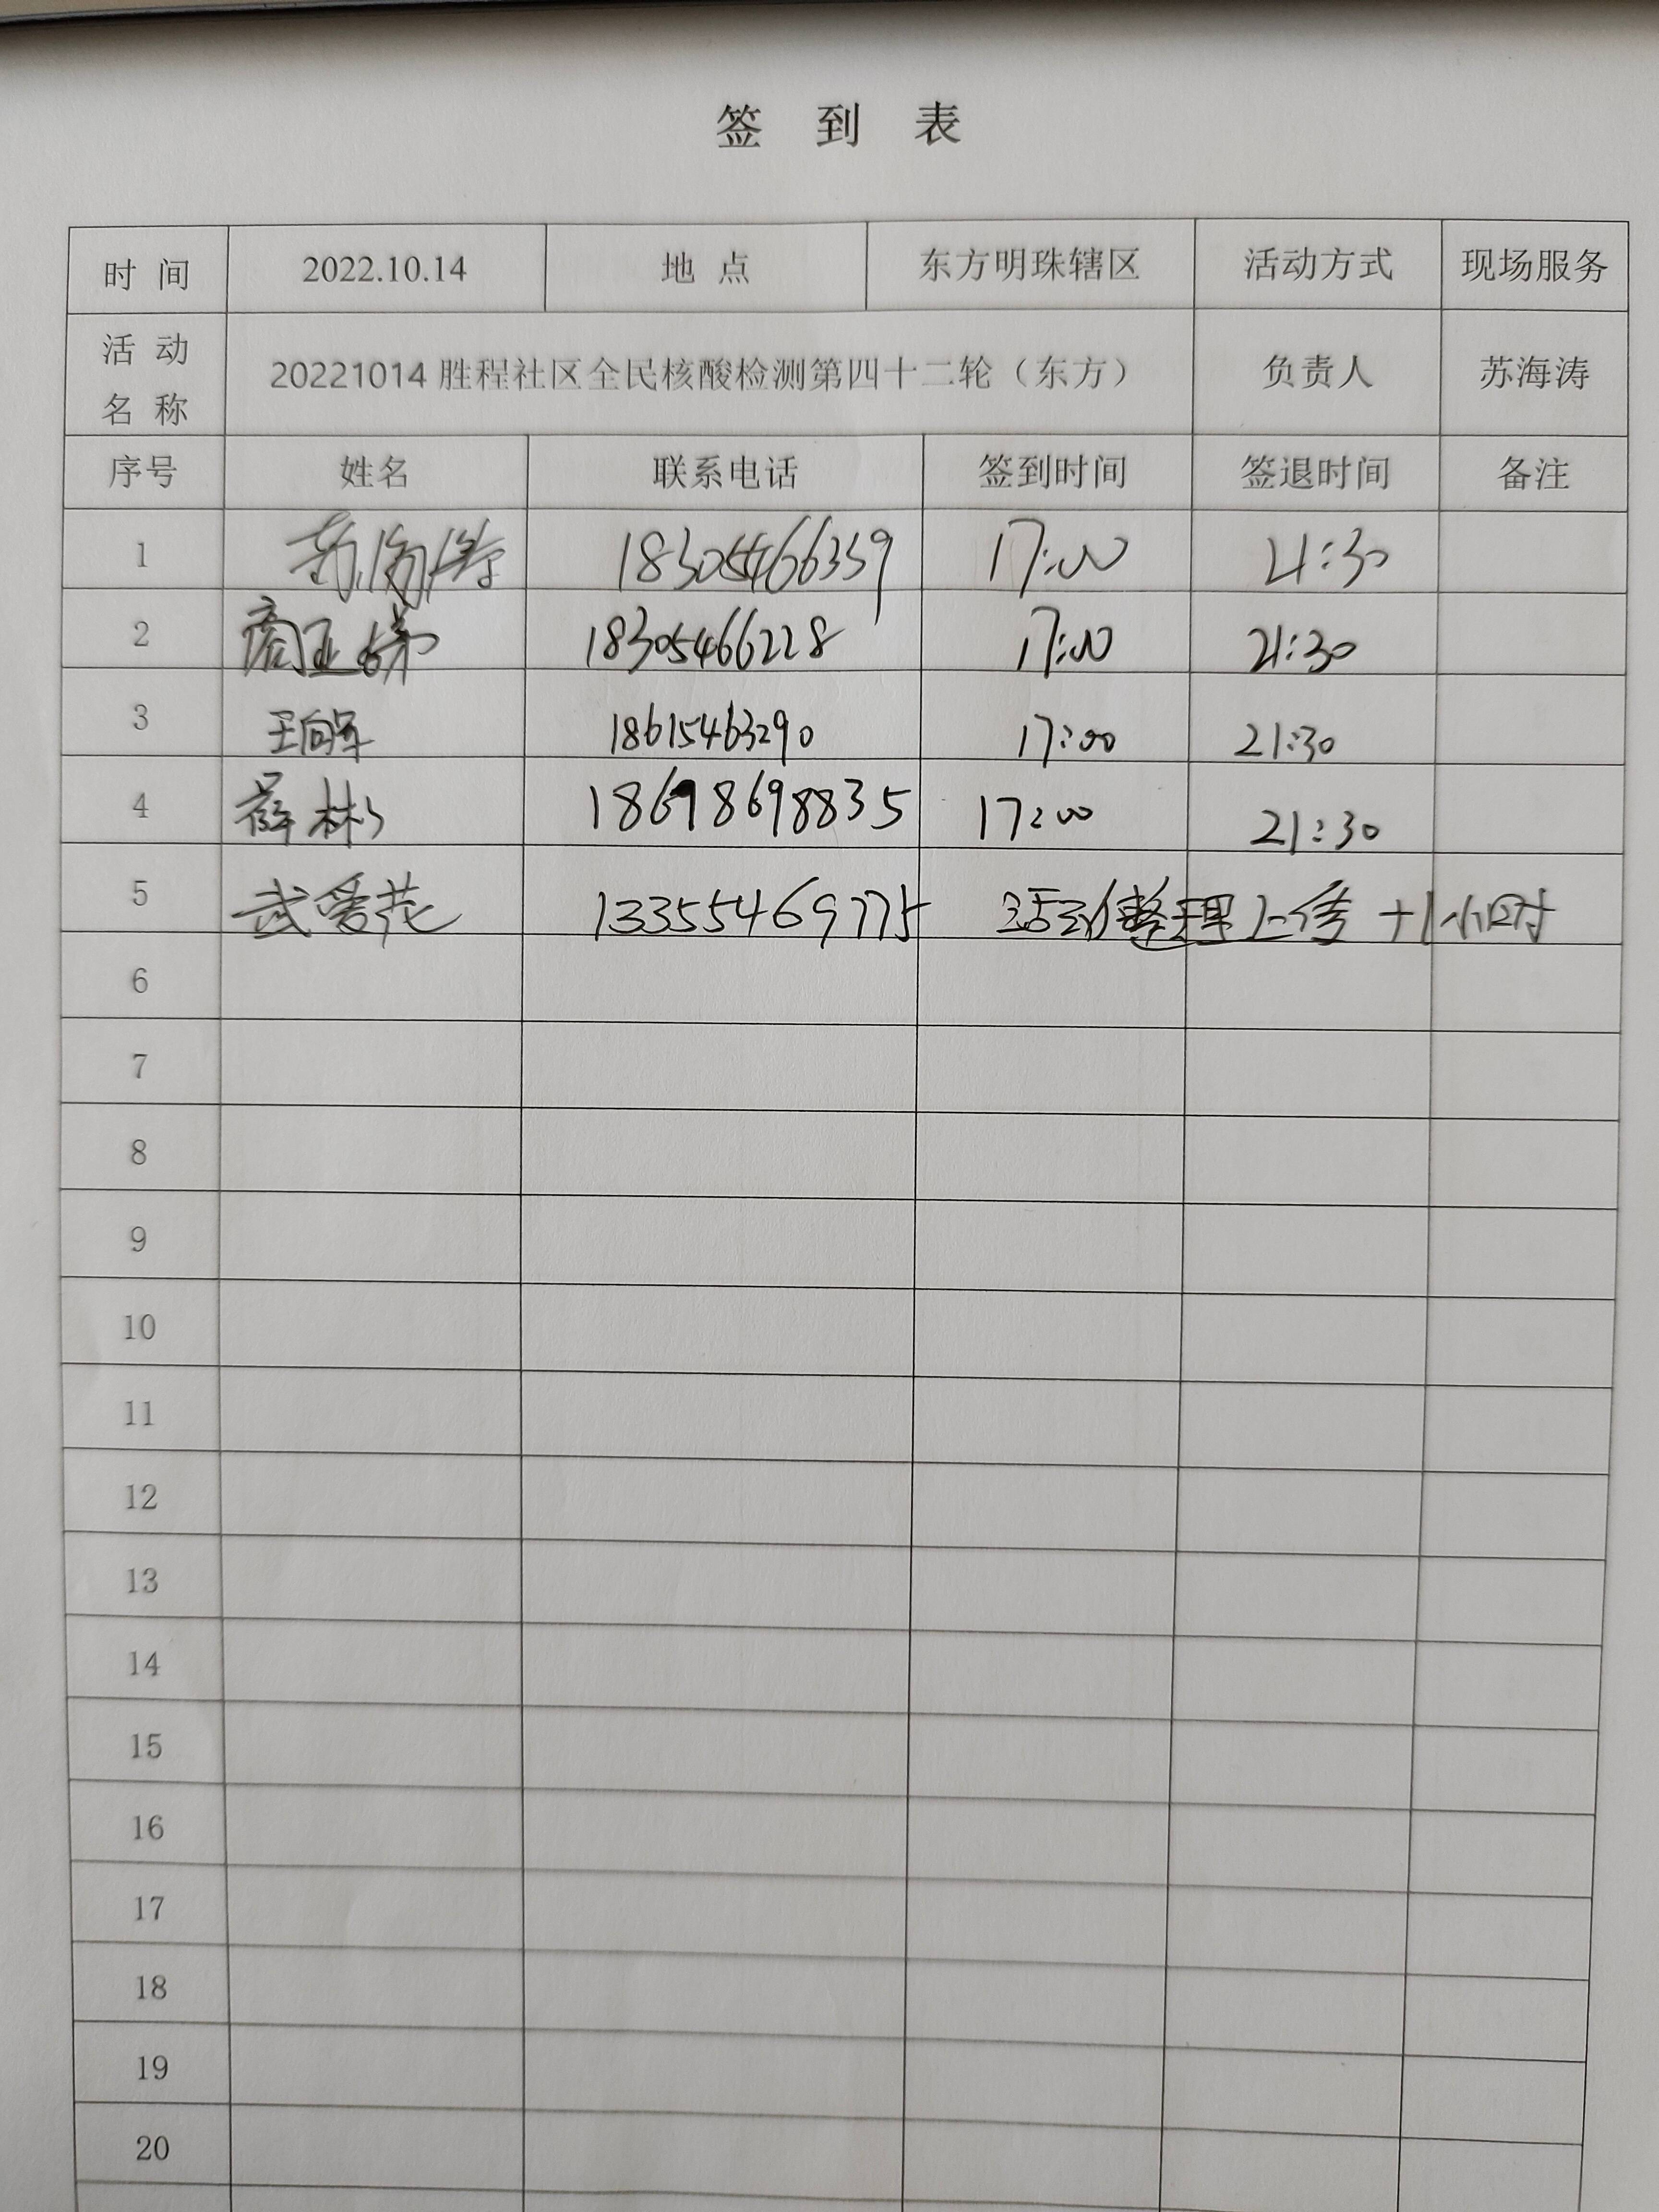 签 到 表
时 间 2022.10.14 地 点 东方明珠辖区 活动方式 现场服务
活 动 名 称 20221014 胜程社区全民核酸检测第四十二轮（东方） 负责人 苏海涛
序号 姓名 联系电话 签到时间 签退时间 备注
1 苏海涛 18305466359 17:00 21:30
2 商亚娣 18305466228 17:00 21:30
3 王向军 18615463290 17:00 21:30
4 薛彬 18698698835 17:00 21:30
5 武爱花 13355469775 活动整理上传 +1小时
6
7
8
9
10
11
12
13
14
15
16
17
18
19
20